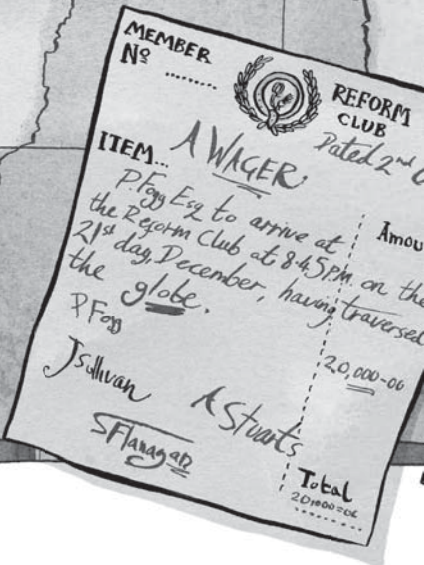 MEMBER
Nº ........
REFORM
CLUB
Dated 2nd
ITEM...
A WAGER:
Amou
P. Fogg Esq to arrive at
the Reform Club at 8.45 P.M. on the
21st day, December, having traversed
the globe.
P Fogg
20,000-00
J Sullivan
A Stuarts
S Flanagan
Total
20,000=00